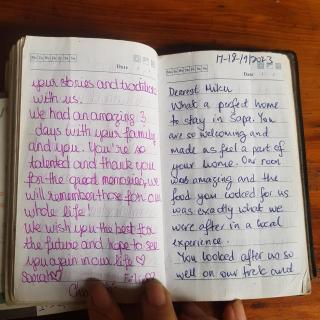 Date
your stories and traditions
with us.
We had an amazing 3
days with your family
and you. You're so
talented and thank you
for the great memories, we
will remember those for our
whole life!
We wish you the best for
the future and hope to see
you again in our life ♡
Sarah♡
17-18/9/2023
Date
Dearest Miku
What a perfect home
to stay in Sapa. You
are so welcoming and
made us feel a part of
your home. Our room
was amazing and the
food you cooked for us
was exactly what we
were after in a local
experience.
You looked after us so
well on our trek and